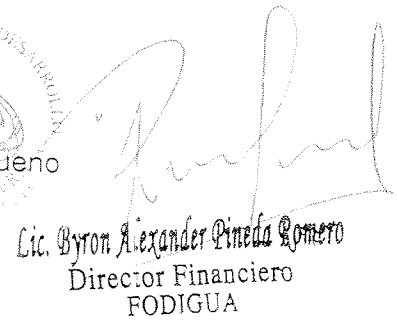 DESARROLL
ueno
Lic. Byron Alexander Pineda Romero
Director Financiero
FODIGUA